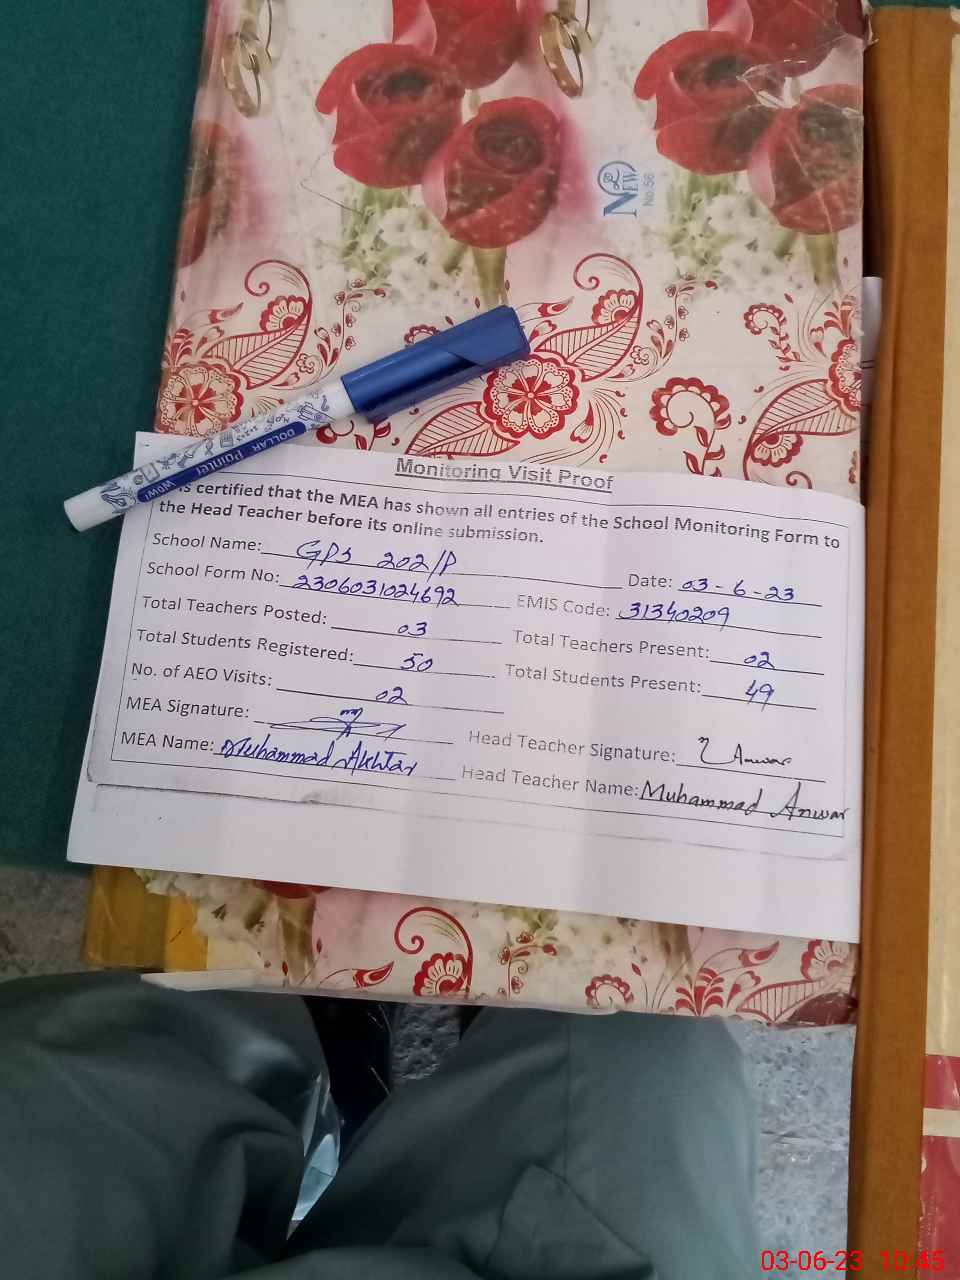 NEW
No.56
DOLLAR Pointer WOW!
Monitoring Visit Proof
is certified that the MEA has shown all entries of the School Monitoring Form to
the Head Teacher before its online submission.
School Name: GPS 202/P Date: 03-6-23
School Form No: 2306031024692 EMIS Code: 31340209
Total Teachers Posted: 03 Total Teachers Present: 02
Total Students Registered: 50 Total Students Present: 49
No. of AEO Visits: 02
MEA Signature: Head Teacher Signature: Anwar
MEA Name: Muhammad Akhtar Head Teacher Name: Muhammad Anwar
03-06-23 10:45